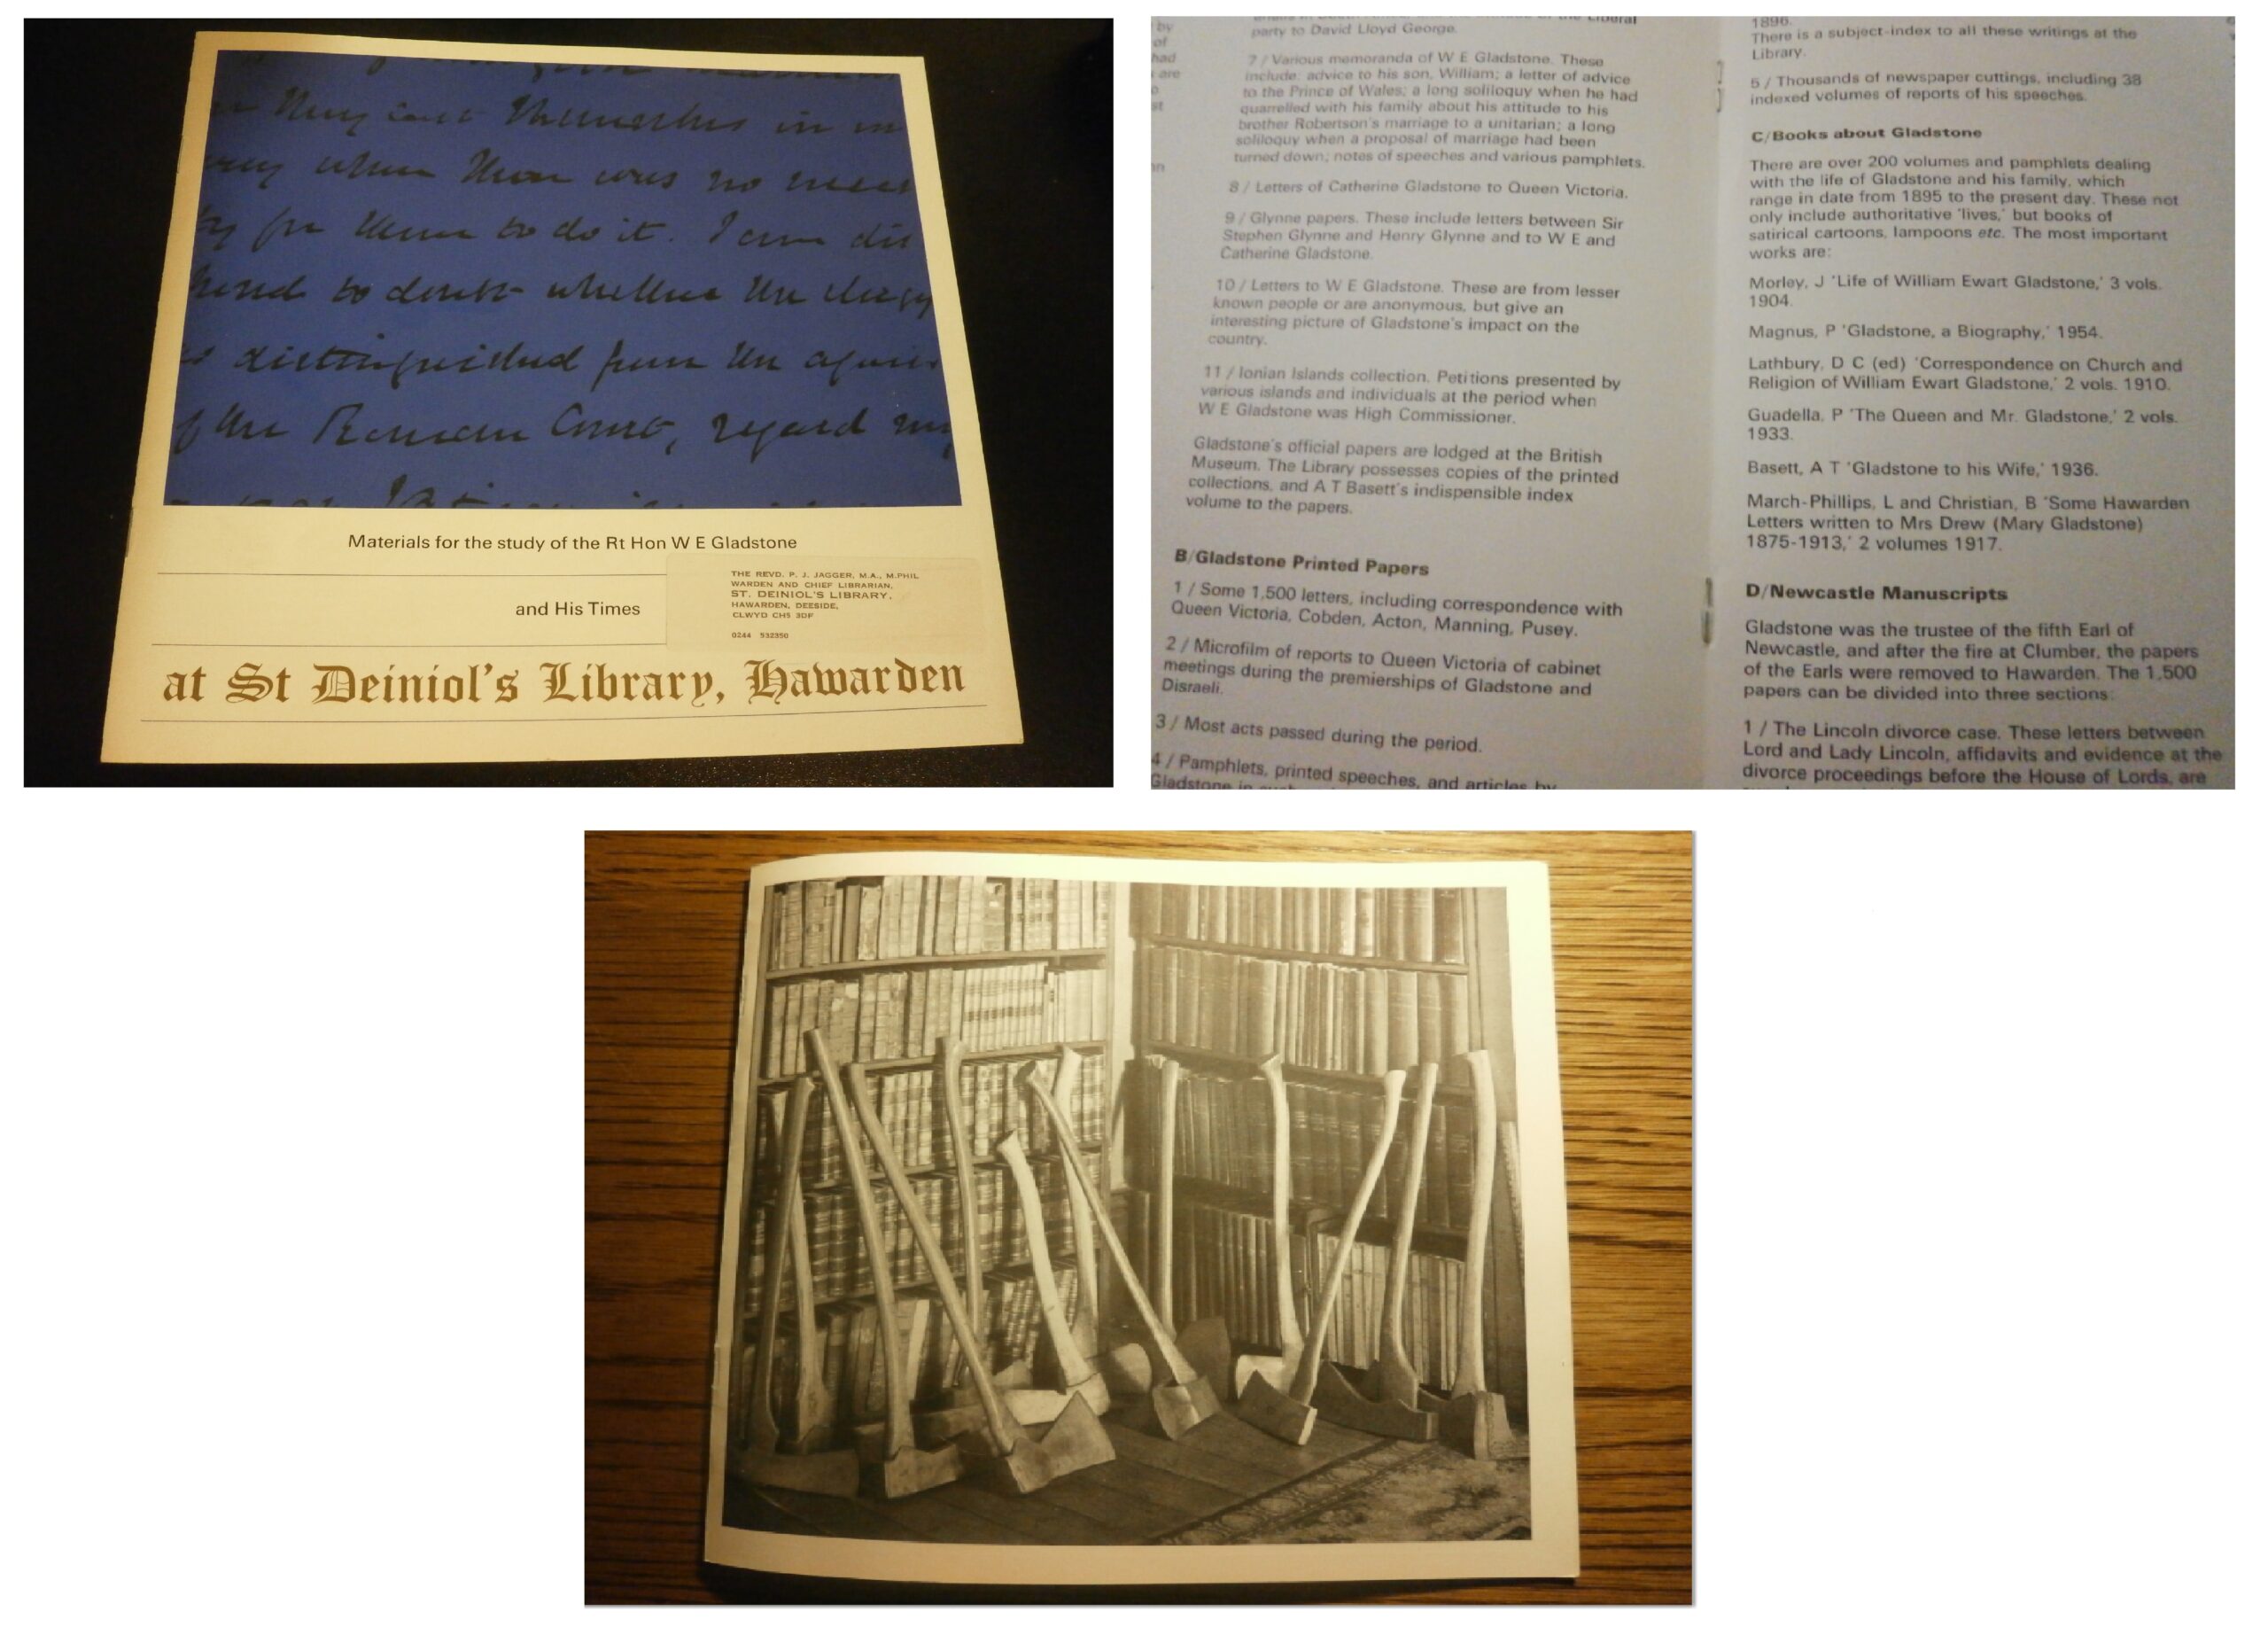 they cast themselves in
when there was no
for them to do it. I am dis
posed to doubt whether the clergy
as distinguished from the
of the Roman Court, regard
Materials for the study of the Rt Hon W E Gladstone
and His Times
THE REVD. P. J. JAGGER, M.A., M.PHIL
WARDEN AND CHIEF LIBRARIAN,
ST. DEINIOL'S LIBRARY,
HAWARDEN, DEESIDE,
CLWYD CH5 3DF
0244 532350
at St Deiniol's Library, Hawarden
by
of
had
are
party to David Lloyd George.
7 / Various memoranda of W E Gladstone. These
include: advice to his son, William; a letter of advice
to the Prince of Wales; a long soliloquy when he had
quarrelled with his family about his attitude to his
brother Robertson's marriage to a unitarian; a long
soliloquy when a proposal of marriage had been
turned down; notes of speeches and various pamphlets.
8 / Letters of Catherine Gladstone to Queen Victoria.
9 / Glynne papers. These include letters between Sir
Stephen Glynne and Henry Glynne and to W E and
Catherine Gladstone.
10 / Letters to W E Gladstone. These are from lesser
known people or are anonymous, but give an
interesting picture of Gladstone's impact on the
country.
11 / Ionian Islands collection. Petitions presented by
various islands and individuals at the period when
W E Gladstone was High Commissioner.
Gladstone's official papers are lodged at the British
Museum. The Library possesses copies of the printed
collections, and A T Basett's indispensible index
volume to the papers.
B/Gladstone Printed Papers
1 / Some 1,500 letters, including correspondence with
Queen Victoria, Cobden, Acton, Manning, Pusey.
2 / Microfilm of reports to Queen Victoria of cabinet
meetings during the premierships of Gladstone and
Disraeli.
3 / Most acts passed during the period.
4 / Pamphlets, printed speeches, and articles by
Gladstone in
1896.
There is a subject-index to all these writings at the
Library.
5 / Thousands of newspaper cuttings, including 38
indexed volumes of reports of his speeches.
C/Books about Gladstone
There are over 200 volumes and pamphlets dealing
with the life of Gladstone and his family, which
range in date from 1895 to the present day. These not
only include authoritative 'lives,' but books of
satirical cartoons, lampoons etc. The most important
works are:
Morley, J 'Life of William Ewart Gladstone,' 3 vols.
1904.
Magnus, P 'Gladstone, a Biography,' 1954.
Lathbury, D C (ed) 'Correspondence on Church and
Religion of William Ewart Gladstone,' 2 vols. 1910.
Guadella, P 'The Queen and Mr. Gladstone,' 2 vols.
1933.
Basett, A T 'Gladstone to his Wife,' 1936.
March-Phillips, L and Christian, B 'Some Hawarden
Letters written to Mrs Drew (Mary Gladstone)
1875-1913,' 2 volumes 1917.
D/Newcastle Manuscripts
Gladstone was the trustee of the fifth Earl of
Newcastle, and after the fire at Clumber, the papers
of the Earls were removed to Hawarden. The 1,500
papers can be divided into three sections:
1 / The Lincoln divorce case. These letters between
Lord and Lady Lincoln, affidavits and evidence at the
divorce proceedings before the House of Lords, are